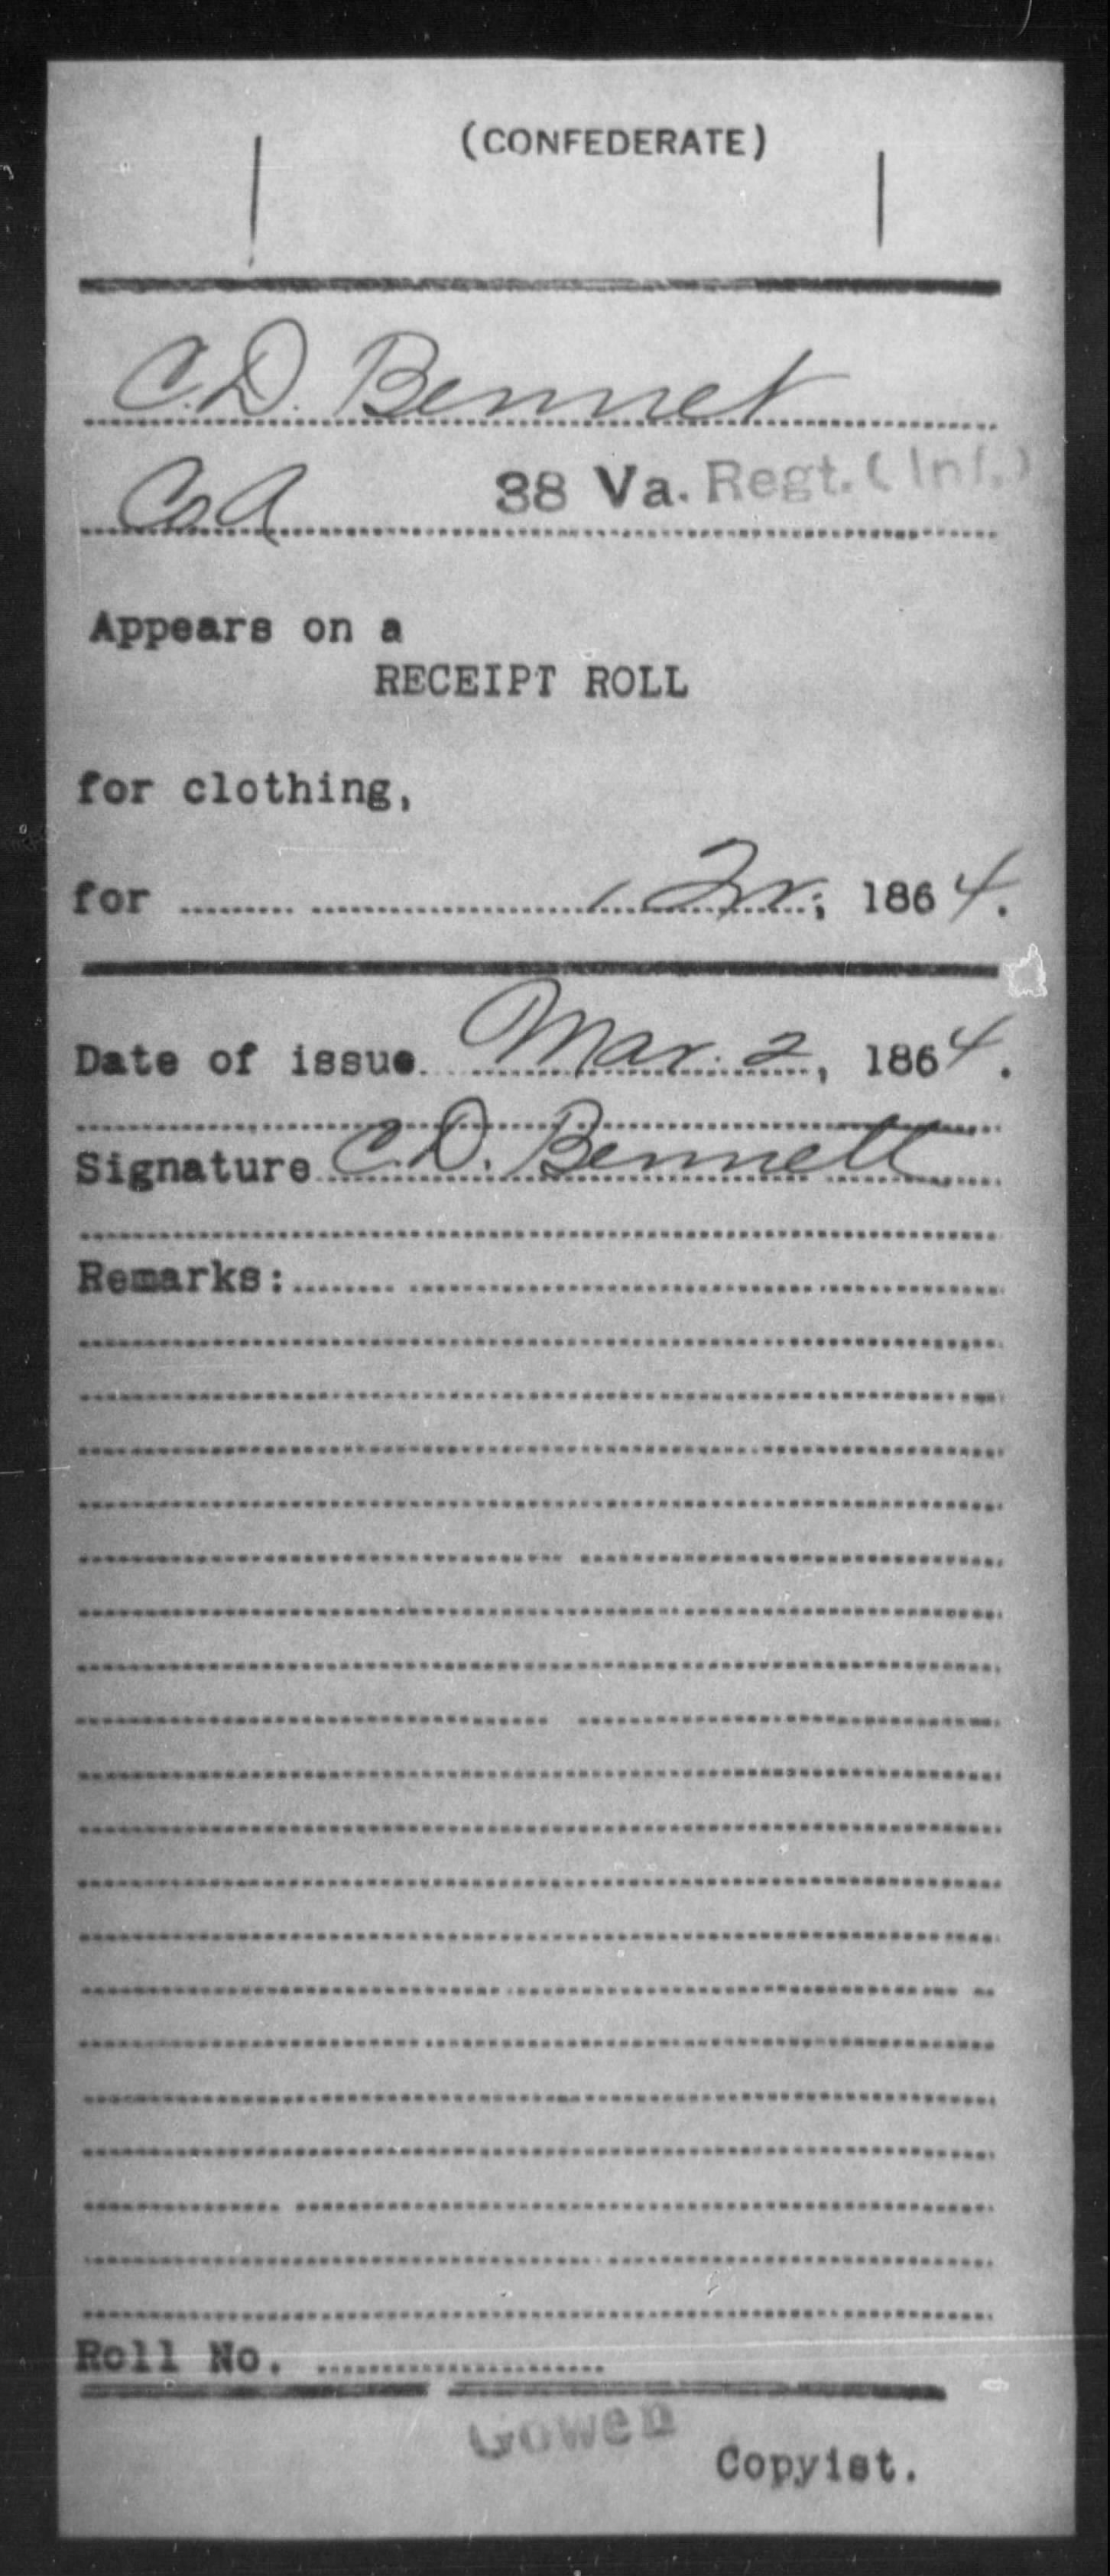 (CONFEDERATE)
C.D. Bennet
Co A 38 Va. Regt. (Inf.)
Appears on a
RECEIPT ROLL
for clothing,
for 1 Qr, 1864.
Date of issue Mar. 2, 1864.
Signature C.D. Bennett
Remarks:
Roll No.
Gowen
Copyist.